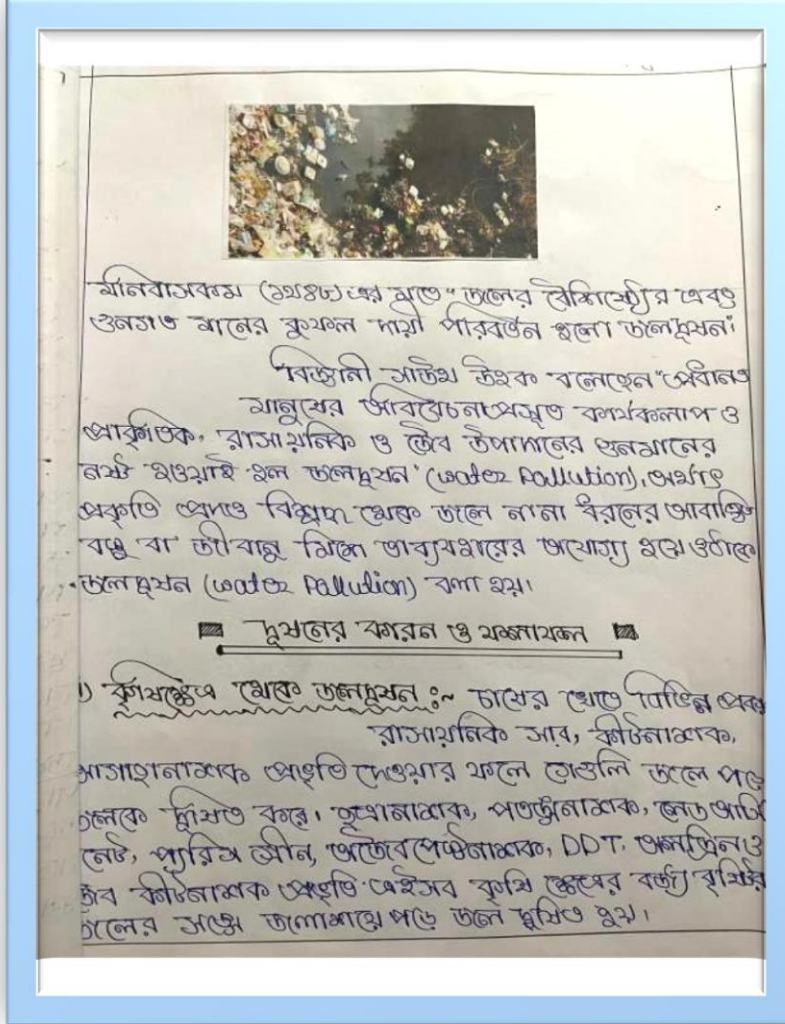 (১৯৪৮) এর মতে "জলের বৈশিষ্ট্যের এবং
গুনগত মানের কুফল দায়ী পরিবর্তন হলো জলদূষন"।
বিজ্ঞানী সাউথ উইক বলেছেন "প্রধানত
মানুষের অবিবেচনাপ্রসূত কার্যকলাপ ও
প্রাকৃতিক, রাসায়নিক ও জৈব উপাদানের গুনমানের
নষ্ট হওয়াই হল জলদূষন" (water Pollution), অর্থাৎ
প্রকৃতি প্রদত্ত বিশুদ্ধ থেকে জলে নানা ধরনের আবাঞ্ছিত
বস্তু বা জীবানু মিশে তা ব্যবহারের অযোগ্য হয়ে ওঠাকে
জলদূষন (water Pollution) বলা হয়।
দূষনের কারন ও ফলাফল
১) কৃষিক্ষেত্র থেকে জলদূষন :~ চাষের খেতে বিভিন্ন
রাসায়নিক সার, কীটনাশক,
আগাছানাশক প্রভৃতি দেওয়ার ফলে সেগুলি জলে পড়ে
জলকে দূষিত করে। ছত্রানাশক, পতঙ্গনাশক, লেড আর্সি
নেট, প্যারিস গ্রীন, অজৈব পেস্টনাশক, DDT, অলড্রিন ও
জৈব কীটনাশক প্রভৃতি এইসব কৃষি ক্ষেত্রের বর্জ্য বৃষ্টির
জলের সঙ্গে জলাশয়ে পড়ে জল দূষিত হয়।